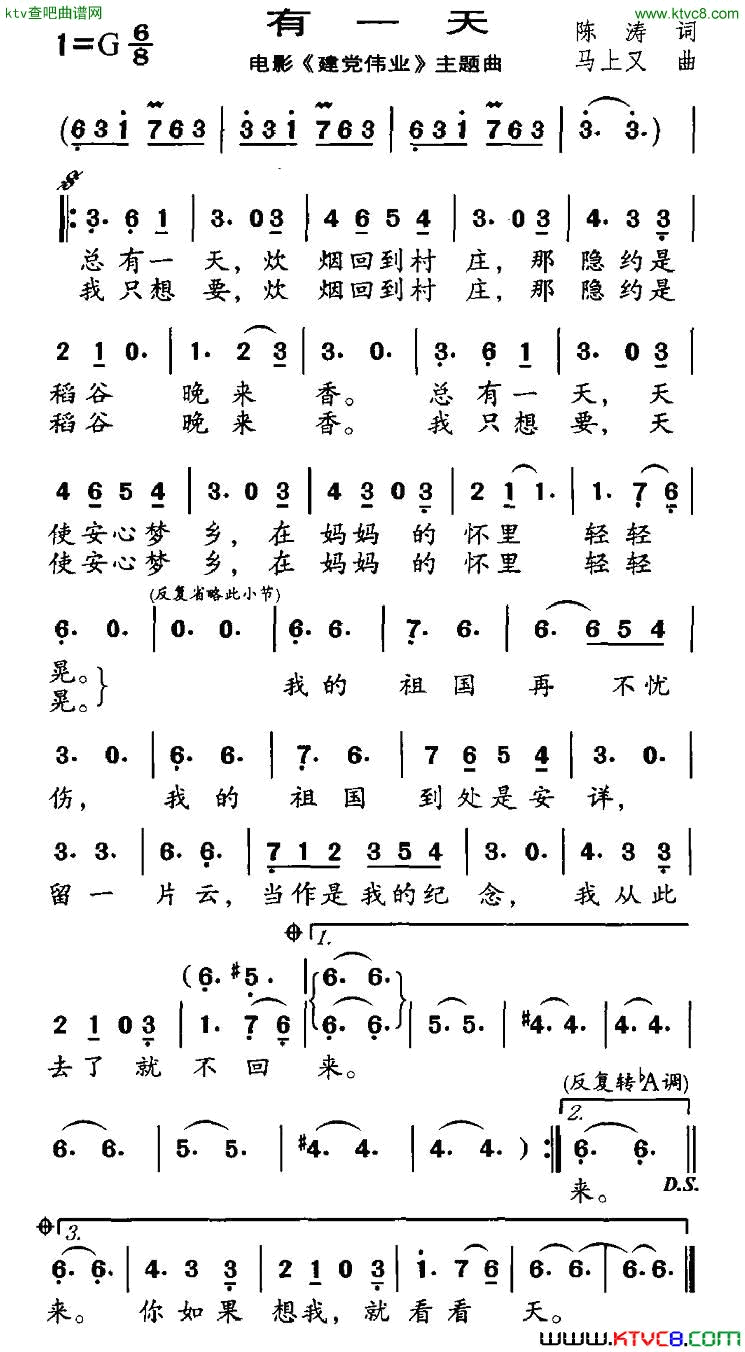 ktv查吧曲谱网
www.ktvc8.com
有一天
1=G 6/8
陈涛 词
电影《建党伟业》主题曲
马上又 曲
(6 3 1 7 6 3 | 3 3 1 7 6 3 | 6 3 1 7 6 3 | 3. 3.)
3. 6 1 | 3. 0 3 | 4 6 5 4 | 3. 0 3 | 4. 3 3
总有一天,炊烟回到村庄,那隐约是
我只想要,炊烟回到村庄,那隐约是
2 1 0. | 1. 2 3 | 3. 0. | 3. 6 1 | 3. 0 3
稻谷 晚来 香。 总有一天,天
稻谷 晚来 香。 我只想要,天
4 6 5 4 | 3. 0 3 | 4 3 0 3 | 2 1 1. | 1. 7 6
使安心梦 乡,在 妈妈 的 怀里 轻轻
使安心梦 乡,在 妈妈 的 怀里 轻轻
(反复省略此小节)
6. 0. | 0. 0. | 6. 6. | 7. 6. | 6. 6 5 4
晃。 我的 祖国 再 不忧
晃。
3. 0. | 6. 6. | 7. 6. | 7 6 5 4 | 3. 0.
伤, 我的 祖国 到处是安 详,
3. 3. | 6. 6. | 7 1 2 3 5 4 | 3. 0. | 4. 3 3
留一 片云,当作是我的纪 念, 我从此
1.
(6. #5. | 6. 6.
2 1 0 3 | 1. 7 6 | 6. 6. | 5. 5. | #4. 4. | 4. 4.
去了 就 不 回 来。
(反复转bA调)
2.
6. 6. | 5. 5. | #4. 4. | 4. 4. ) :‖ 6. 6. ‖
来。 D.S.
3.
6. 6. | 4. 3 3 | 2 1 0 3 | 1. 7 6 | 6. 6. | 6. 6. ‖
来。 你如果 想我,就 看看 天。
www.KTVC8.com